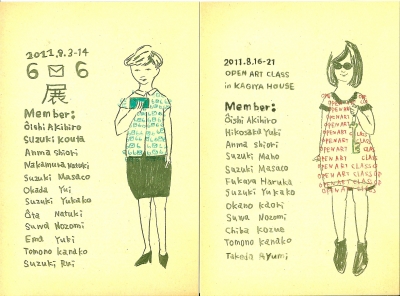 2011.8.3-14
6 6
展
Member:
Ôishi Akihiro
Suzuki Kouta
Anma Shiori
Nakamura Natuki
Suzuki Masaco
Okada Yui
Suzuki Yukako
Ôta Natuki
Suwa Nozomi
Ema Yuki
Tomono Kanako
Suzuki Rui
2011.8.16-21
OPEN ART CLASS
in KAGIYA HOUSE
Member:
Ôishi Akihiro
Hikosaka Yuki
Anma Shiori
Suzuki Maho
Suzuki Masaco
Fukaya Haruka
Suzuki Yukako
Okano Kaori
Suwa Nozomi
Chiba Kozue
Tomono Kanako
Takeda Ayumi
OPEN ART CLASS
OPEN ART CLASS
OPEN ART CLASS